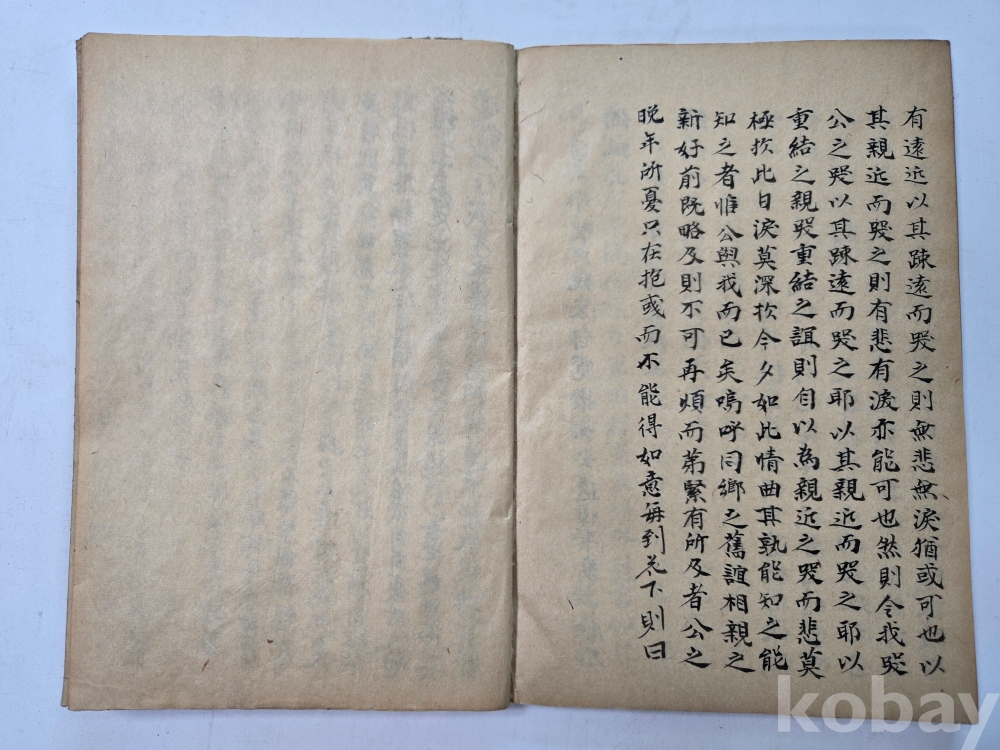 有遠近以其踈遠而哭之則無悲無淚猶或可也以
其親近而哭之則有悲有淚亦能可也然則今我哭
公之哭以其踈遠而哭之耶以其親近而哭之耶以
重結之親哭重結之誼則自以為親近之哭而悲莫
極於此日淚莫深於今夕如此情曲其孰能知之能
知之者惟公與我而已矣嗚呼同鄉之舊誼相親之
新好前旣略及則不可再煩而苐緊有所及者公之
晚年所憂只在抱或而不能得如意每到花下則曰
kobay